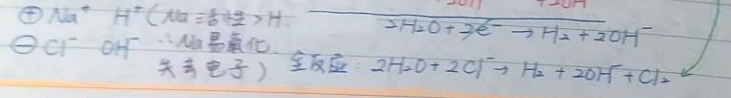 +2OH
⊕ Na⁺ H⁺ (Na 活性 > H. 2H₂O + 2e⁻ → H₂ + 2OH⁻
⊖ Cl⁻ OH⁻ ∴ Na 易氧化.
失去电子) 全反应: 2H₂O + 2Cl⁻ → H₂ + 2OH⁻ + Cl₂